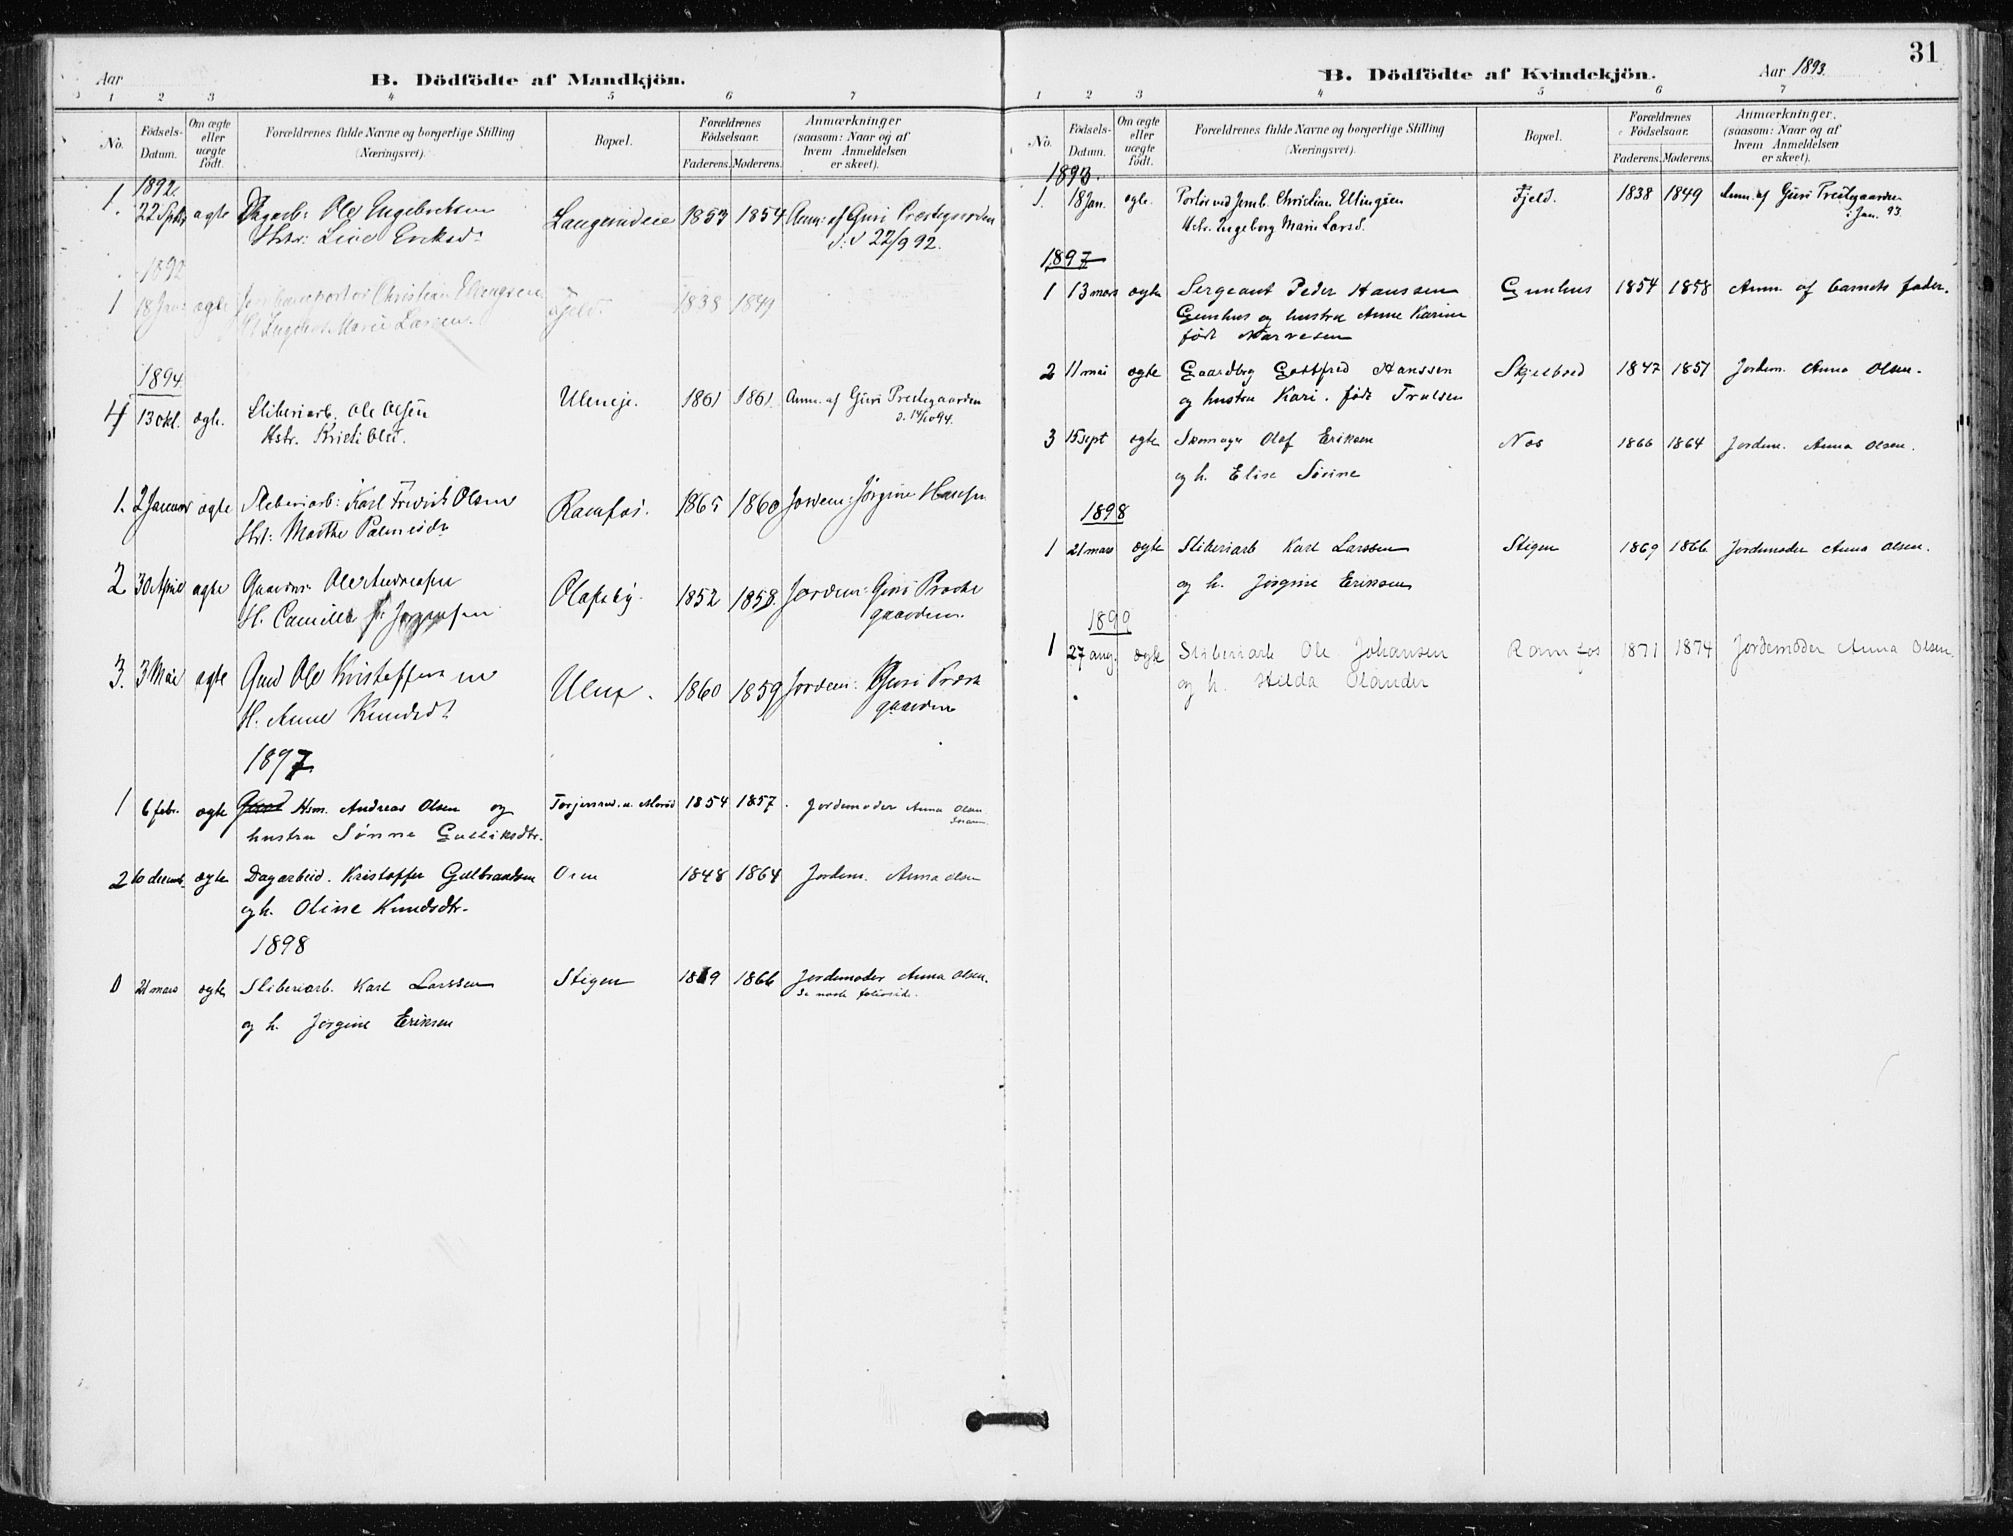 Aar
B. Dödfödte af Mandkjön.
1 2 3 4 5 6 7
No.
Födsels-Datum.
Om ægte eller uægte födt.
Forældrenes fulde Navne og borgerlige Stilling
(Næringsvei).
Bopæl.
Forældrenes Födselsaar.
Faderens. Moderens.
Anmærkninger
(saasom: Naar og af
hvem Anmeldelsen
er skeet).
1892.
1. 22 Sptbr ægte Dagarb: Ole Engebretsen 1853 1854 Anm: af Guri Præstegaarden
Hstr: Lise Eriksd. 22/9 92.
1892
1 18 Jan: ægte Christian Ellingsen Fjeld. 1838 1849
Ingebor Marie Larsen.
1894.
4 13 okt. ægte. Sliberiarb. Ole Olsen Uleneje. 1861 1861. Anm. af Guri Prestegaarden
Hstr. d. 14/10 94.
1. 2 Januar ægte Sliberiarb: Karl Fredrik Olsen Ramfos. 1865 1860 Jordem: Jørgine Hansen
Hst: Marthe
2 30 April ægte Ole Andreasen Olafsby. 1852 1858. Jordem: Guri Præste
H. Camilla f. Jørgensen gaarden.
3. 3 Mai ægte Gmd Ole Kristoffersen Ulen. 1860 1859 Jordem: Guri Præste
H. Anne Knudsdt gaarden
1897.
1 6 febr. ægte Hsm. Andreas Olsen og 1854 1857. Jordemoder Anna Olsen
hustru Sønne Gulliksdtr.
2 10 decemb. ægte Dagarbeid. Kristoffer Gulbrandsen Oren 1848 1864 Jordem. Anna Olsen
og h. Oline Knudsdtr.
1898
21 mars ægte Sliberiarb. Karl Larssen Stigen 1869 1866 Jordemoder Anna Olsen.
Se næste folioside.
og h. Jørgine Eriksen
31
B. Dödfödte af Kvindekjön.
Aar 1893.
1 2 3 4 5 6 7
No.
Födsels-Datum.
Om ægte eller uægte födt.
Forældrenes fulde Navne og borgerlige Stilling
(Næringsvei).
Bopæl.
Forældrenes Födselsaar.
Faderens. Moderens.
Anmærkninger.
(saasom: Naar og af
hvem Anmeldelsen
er skeet).
1893.
1. 18 Jan. ægte. Portør ved Jernb. Christian Ellingsen Fjeld. 1838 1849 Anm. af Guri Prestegaarden
Hstr. Ingeborg Marie Larsd. i Jan. 93.
1897
1 13 mars ægte Sergeant Peder Hanssen Gunhus 1854 1858 Anm. af barnets fader.
Gunhus og hustru Anne Karine
født Narvesen
2 11 mai ægte Gaardbr Gottfred Hanssen Skjelbred 1847 1851 Jordem. Anna Olsen.
og hustru Kari. født Trulsen
3 15 sept ægte Skomager Olaf Eriksen Nos 1866 1864 Jordem. Anna Olsen.
og h. Elise Sørine
1898
1 21 mars ægte Sliberiarb Karl Larssen Stigen 1869 1866 Jordemoder Anna Olsen.
og h. Jørgine Eriksen
1899
1 27 aug. ægte Sliberiarb Ole Johansen Ramfos 1871 1874 Jordemoder Anna Olsen.
og h. Hilda Olander